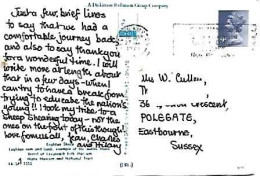 A Dickinson Robinson Group Company
Just a few brief lines
to say that we had a
comfortable journey back
and also to say thankyou
for a wonderful time. I will
write more at length about
that in a few days - when I
can try to have a break from
trying to educate the nation's
young!! I took my tribe to a
Sheep Shearing today - not the
ones on the front of this though!
Love from us all, Jean, Charles
and Hilary
Mr W. Cullen,
Th
36 Crescent,
POLEGATE,
Eastbourne,
Sussex